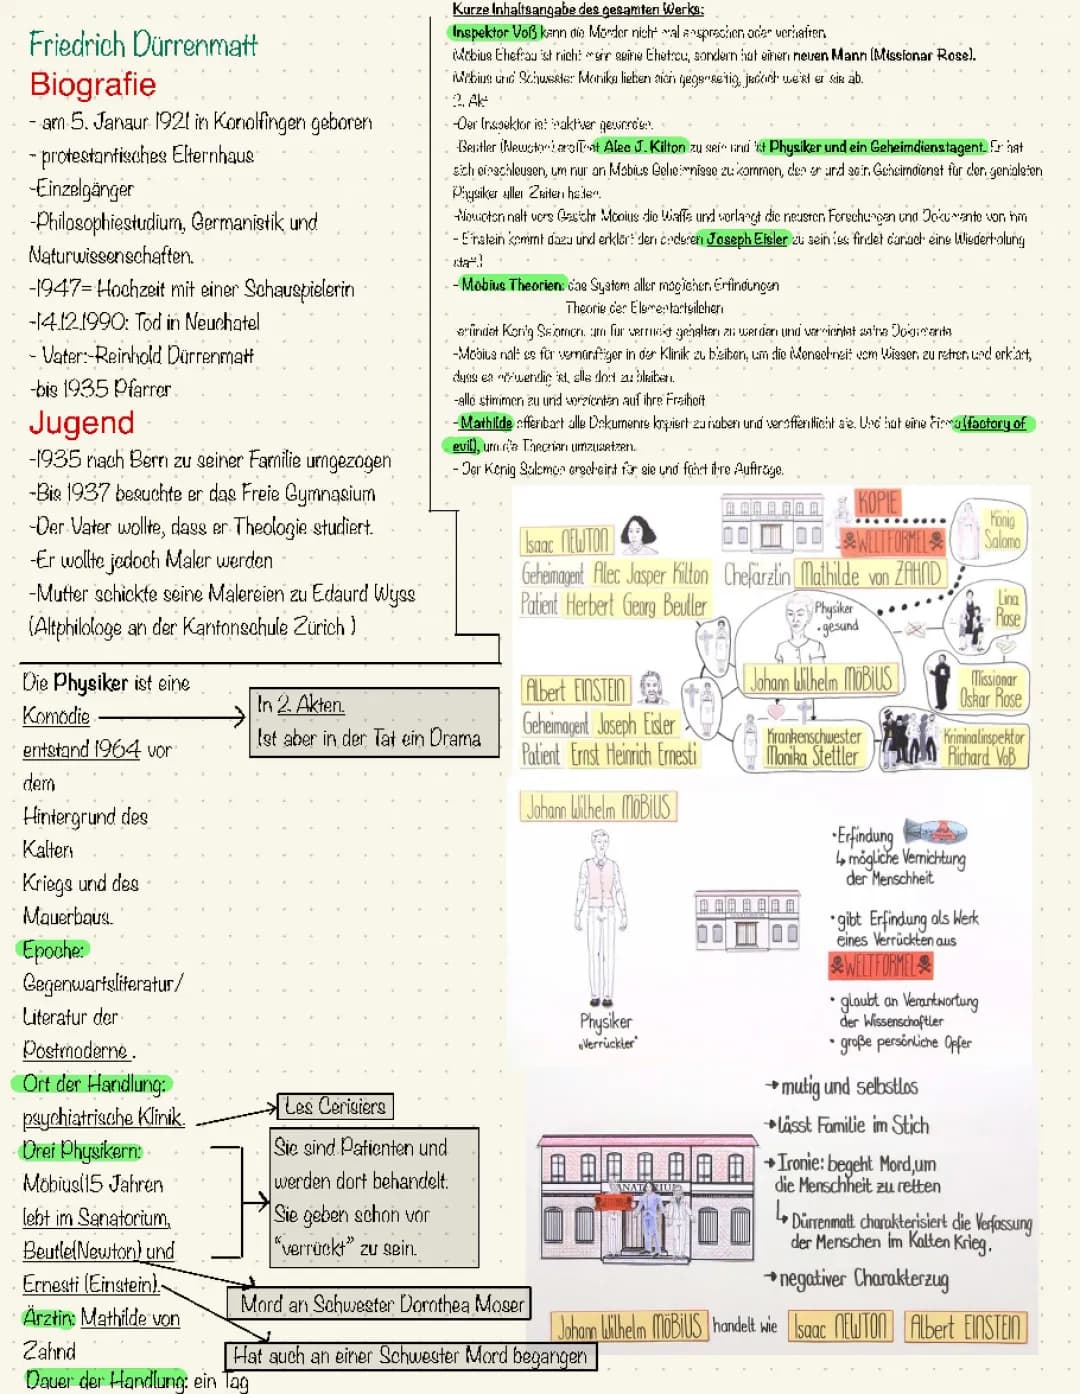 Friedrich Dürrenmatt
Biografie
- am 5. Janaur 1921 in Konolfingen geboren
- protestantisches Elternhaus
-Einzelgänger
-Philosophiestudium, Germanistik und
Naturwissenschaften.
-1947= Hochzeit mit einer Schauspielerin
-14.12.1990: Tod in Neuchatel
- Vater:-Reinhold Dürrenmatt
-bis 1935 Pfarrer
Jugend
-1935 nach Bern zu seiner Familie umgezogen
-Bis 1937 besuchte er das Freie Gymnasium
-Der Vater wollte, dass er Theologie studiert.
-Er wollte jedoch Maler werden
-Mutter schickte seine Malereien zu Edaurd Wyss
(Altphilologe an der Kantonschule Zürich )
Die Physiker ist eine
Komödie
entstand 1964 vor
dem
Hintergrund des
Kalten
Kriegs und des
Mauerbaus.
Epoche:
Gegenwartsliteratur/
Literatur der
Postmoderne.
Ort der Handlung:
psychiatrische Klinik.
Drei Physikern:
Möbius(15 Jahren
lebt im Sanatorium,
Beutle(Newton) und
Ernesti (Einstein).
Ärztin: Mathilde von
Zahnd
Dauer der Handlung: ein Tag
In 2. Akten.
Ist aber in der Tat ein Drama
Les Cerisiers
Sie sind Patienten und
werden dort behandelt.
Sie geben schon vor
"verrückt" zu sein.
Mord an Schwester Dorothea Moser
Hat auch an einer Schwester Mord begangen
Kurze Inhaltsangabe des gesamten Werks:
Inspektor Voß kann die Mörder nicht mal ansprechen oder verhaften.
Möbius Ehefrau ist nicht mehr seine Ehefrau, sondern hat einen neuen Mann (Missionar Rose).
Möbius und Schwester Monika lieben sich gegenseitig, jedoch weist er sie ab.
2. Akt
-Der Inspektor ist inaktiver geworden.
-Beutler (Newoton) Alec J. Kilton zu sein und ist Physiker und ein Geheimdienstagent. Er hat
sich einschleusen, um nur an Möbius Geheimnisse zu kommen, den er und sein Geheimdienst für den genialsten
Physiker aller Zeiten halten.
-Newoton hält vors Gesicht Möbius die Waffe und verlangt die neusten Forschungen und Dokumente von ihm
- Einstein kommt dazu und erklärt den anderen Joseph Eisler zu sein (es findet danach eine Wiederholung
statt)
- Möbius Theorien: das System aller möglichen Erfindungen
Theorie der Elementarteilchen
-erfindet König Salomon, um für verrückt gehalten zu werden und vernichtet seine Dokumente
-Möbius hält es für vernünftiger in der Klinik zu bleiben, um die Menschheit vom Wissen zu retten und erklärt,
dass es notwendig ist, alle dort zu bleiben.
-alle stimmen zu und verzichten auf ihre Freiheit
- Mathilde offenbart alle Dokumente kopiert zu haben und veröffentlicht sie. Und hat eine Firma (factory of
evil), um die Theorien umzusetzen.
- Der König Salomon erscheint für sie und führt ihre Aufträge.
Isaac NEWTON
Geheimagent Alec Jasper Kilton
Patient Herbert Georg Beutler
KOPIE
WELTFORMEL
Chefärztin Mathilde von ZAHND
König
Salomo
Physiker
• gesund
Johann Wilhelm MÖBIUS
Lina
Rose
Missionar
Oskar Rose
Albert EINSTEIN
Geheimagent Joseph Eisler
Patient Ernst Heinrich Ernesti
Krankenschwester
Monika Stettler
Kriminalinspektor
Richard Voß
Johann Wilhelm MÖBIUS
Physiker
"Verrückter"
• Erfindung
↳ mögliche Vernichtung
der Menschheit
• gibt Erfindung als Werk
eines Verrückten aus
WELTFORMEL
• glaubt an Verantwortung
der Wissenschaftler
• große persönliche Opfer
SANATORIUM
→ mutig und selbstlos
→ lässt Familie im Stich
→ Ironie: begeht Mord, um
die Menschheit zu retten
↳ Dürrenmatt charakterisiert die Verfassung
der Menschen im Kalten Krieg.
→ negativer Charakterzug
Johann Wilhelm MÖBIUS handelt wie Isaac NEWTON Albert EINSTEIN